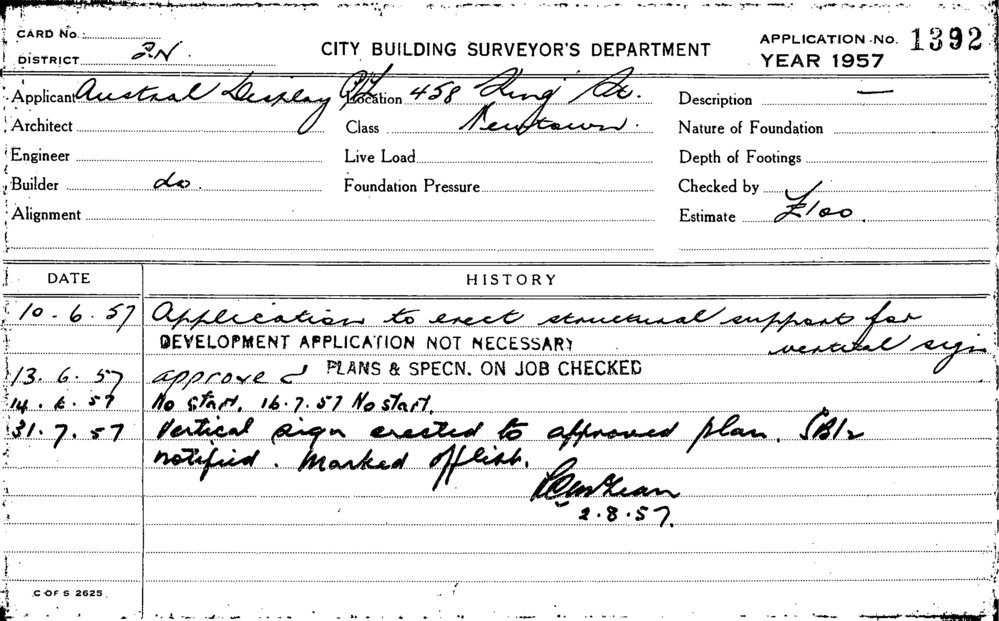 CARD No.
DISTRICT 2N
CITY BUILDING SURVEYOR'S DEPARTMENT
APPLICATION No. 1392
YEAR 1957
Applicant Austral Display P/L Location 458 King St. Description —
Architect Class Newtown. Nature of Foundation
Engineer Live Load Depth of Footings
Builder do. Foundation Pressure Checked by
Alignment Estimate £100.
DATE HISTORY
10.6.57 Application to erect structural support for
vertical sign
DEVELOPMENT APPLICATION NOT NECESSARY
13.6.57 approved PLANS & SPECN. ON JOB CHECKED
14.6.57 No start. 16.7.57 No start.
31.7.57 Vertical sign erected to approved plan.
notified. Marked off list.
2.8.57.
C OF S 2625